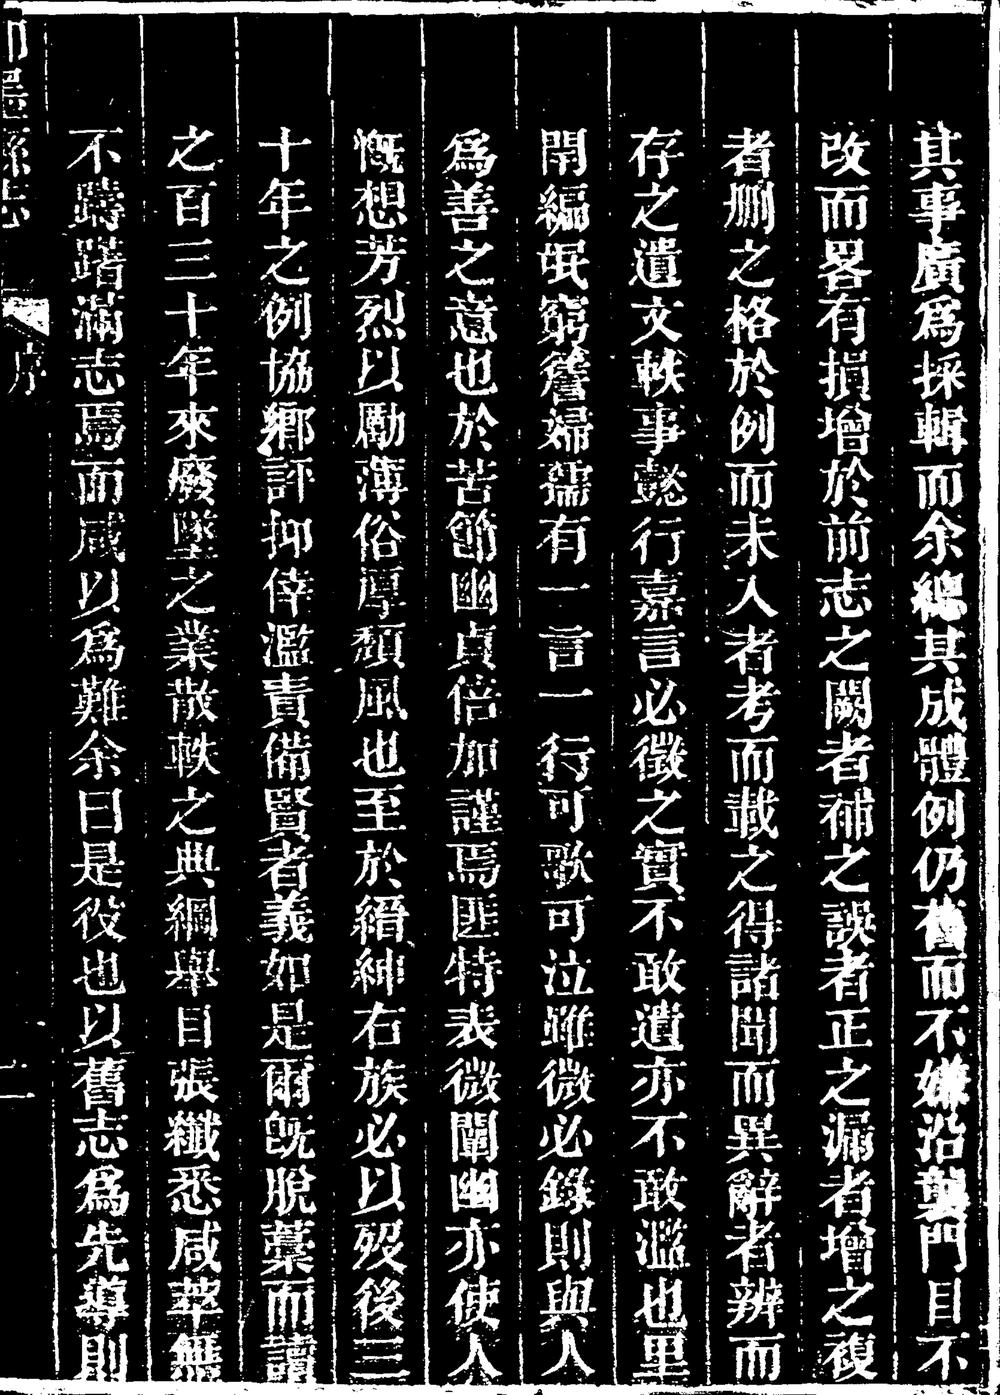 其事廣爲採輯而余總其成體例仍舊而不嫌沿襲門目不
改而畧有損增於前志之闕者補之誤者正之漏者增之複
者刪之格於例而未入者考而載之得諸聞而異辭者辨而
存之遺文軼事懿行嘉言必徵之實不敢遺亦不敢濫也里
閈編氓窮簷婦孺有一言一行可歌可泣雖微必錄則與人
爲善之意也於苦節幽貞倍加謹焉匪特表微闡幽亦使人
慨想芳烈以勵薄俗厚頹風也至於縉紳右族必以歿後三
十年之例協鄉評抑倖濫責備賢者義如是爾旣脫藁而讀
之百三十年來廢墜之業散軼之典綱舉目張纖悉咸萃無
不躊躇滿志焉而咸以爲難余曰是役也以舊志爲先導則
卽墨縣志
序
二